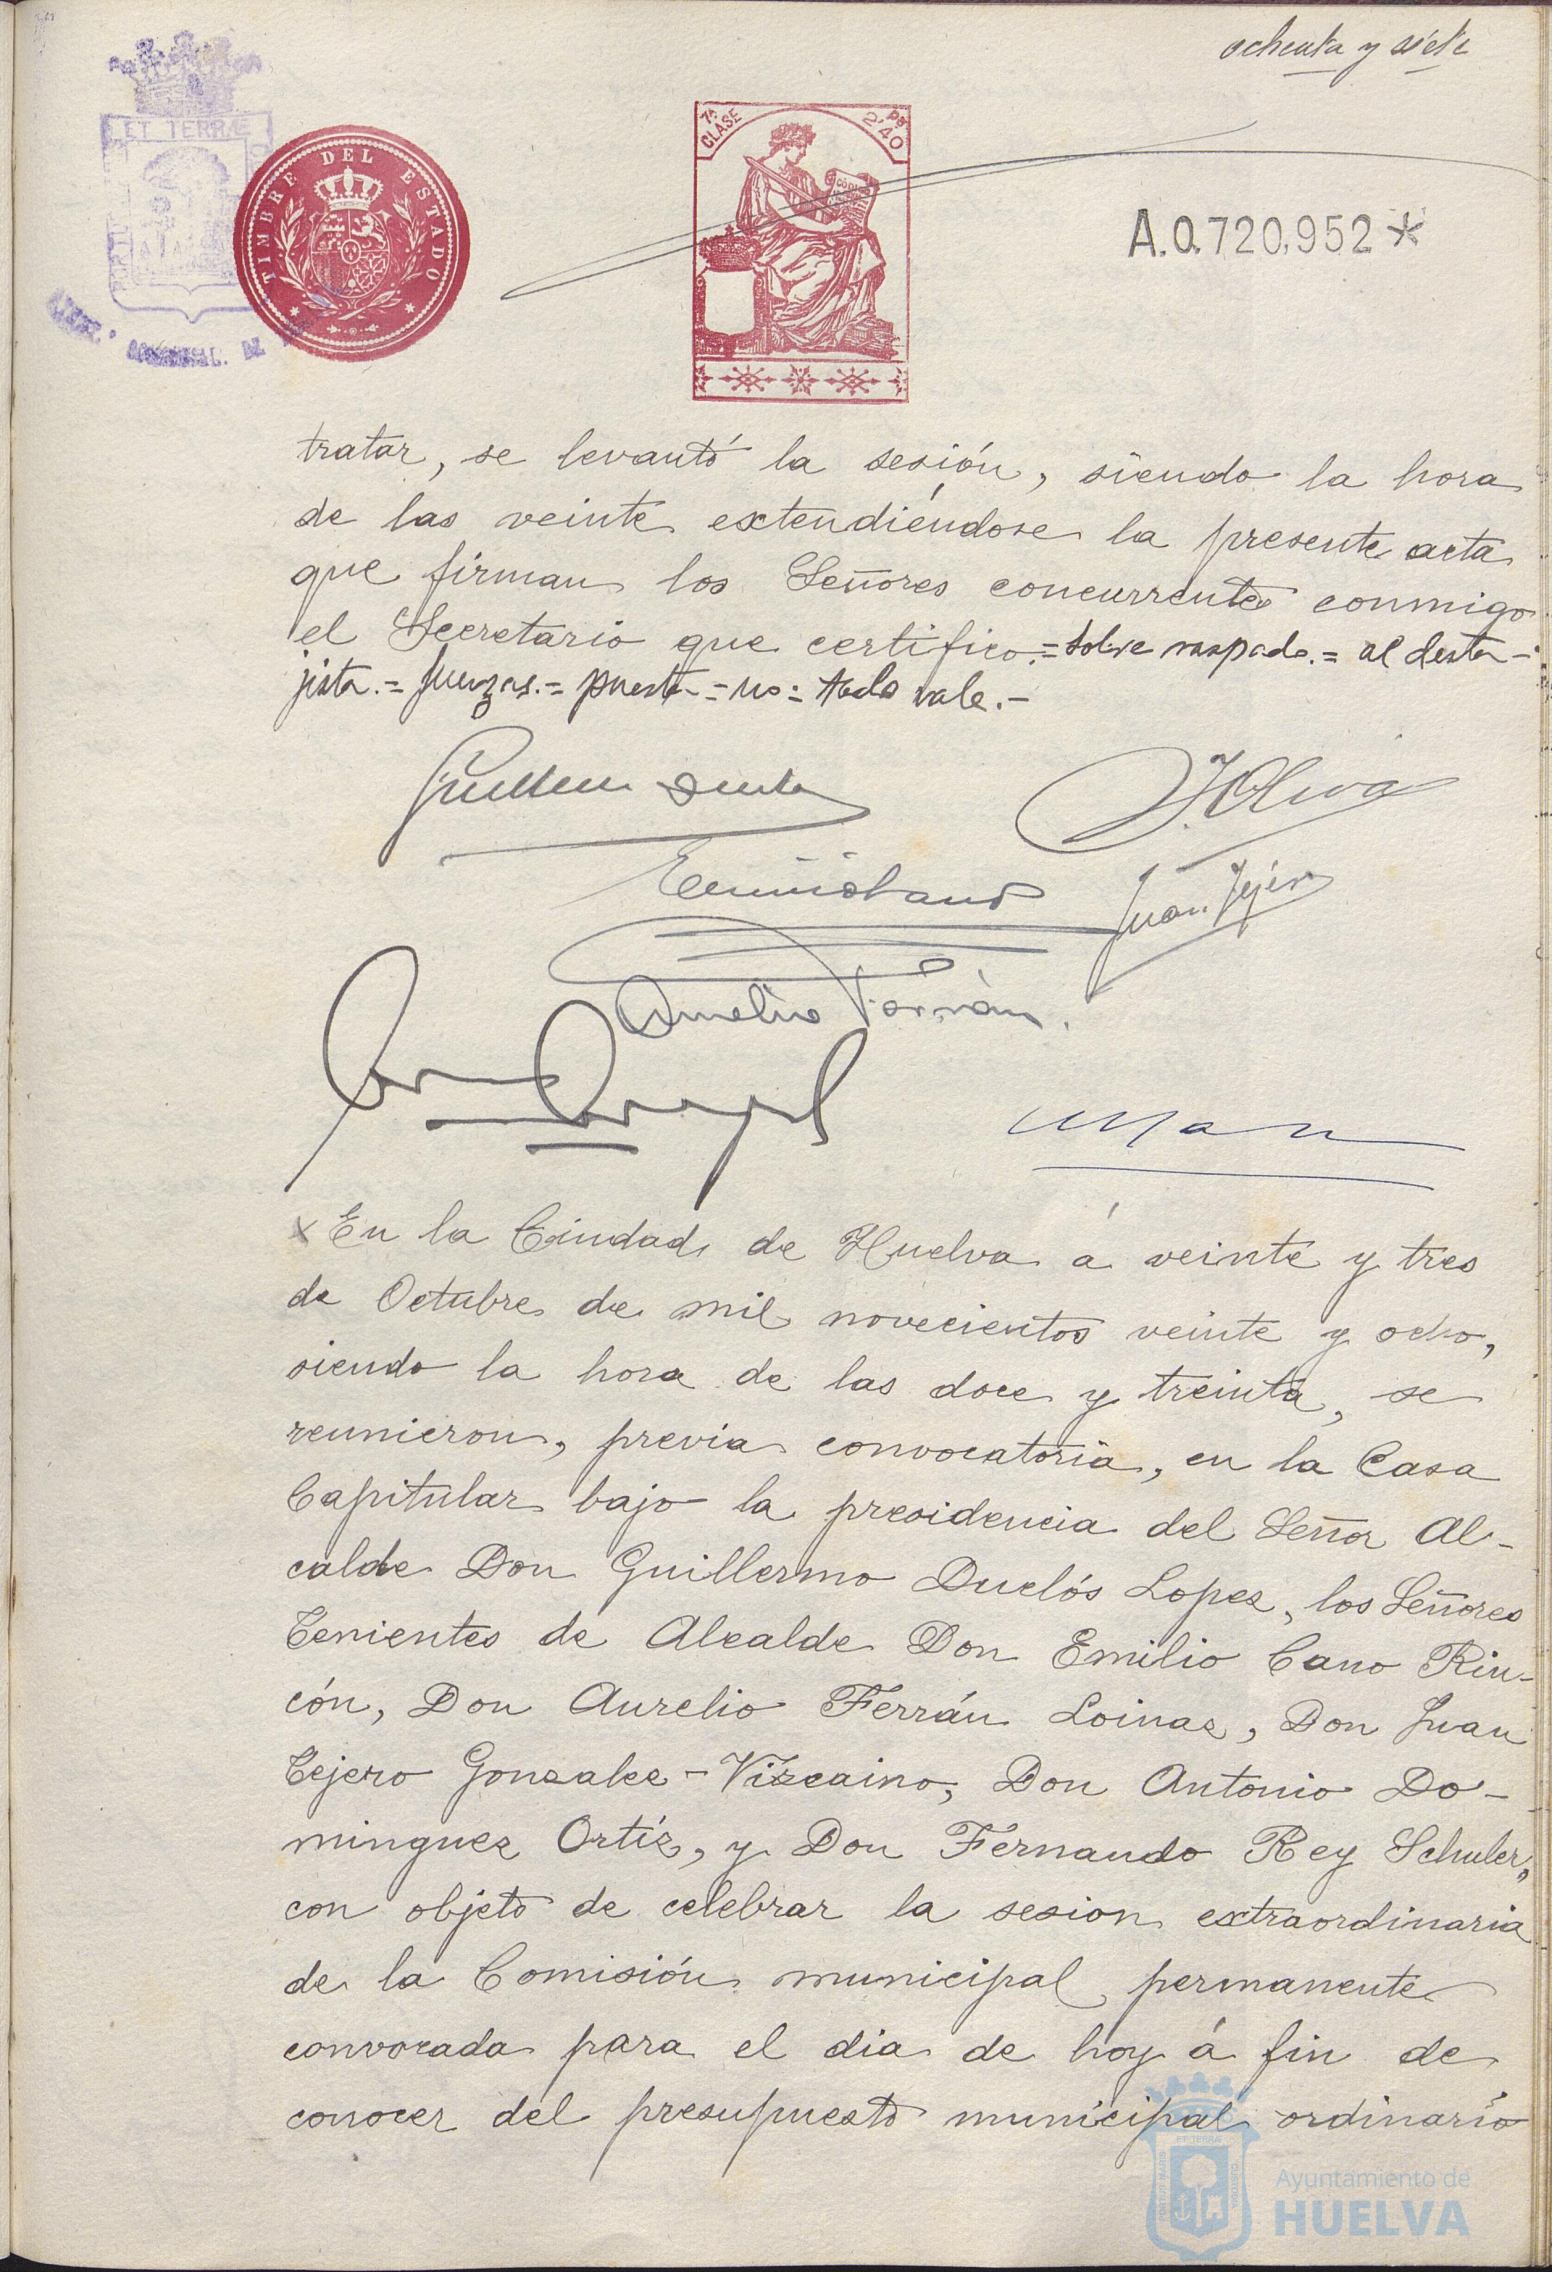 ochenta y siete
ET TERRÆ
TIMBRE DEL ESTADO
7ª CLASE
Ps 2'40
CODIGO
A.0.720,952*
tratar, se levantó la sesión, siendo la hora
de las veinte extendiéndose la presente acta
que firman los Señores concurrentes conmigo
el Secretario que certifico.=sobre raspado.= al desta-
jista.= fuerzas.= puesta=no= todo vale.-
J. Oliva
Emilio Cano
Juan Tejero
Aurelio Ferrán.
En la Ciudad de Huelva á veinte y tres
de Octubre de mil novecientos veinte y ocho,
siendo la hora de las doce y treinta, se
reunieron, previa convocatoria, en la Casa
Capitular bajo la presidencia del Señor Al-
calde Don Guillermo Duclós Lopez, los Señores
Tenientes de Alcalde Don Emilio Cano Rin-
cón, Don Aurelio Ferrán Loinaz, Don Juan
Tejero Gonzalez-Vizcaino, Don Antonio Do-
minguez Ortíz, y Don Fernando Rey Schuler,
con objeto de celebrar la sesion extraordinaria
de la Comisión municipal permanente
convocada para el dia de hoy á fin de
conocer del presupuesto municipal ordinario
Ayuntamiento de
HUELVA